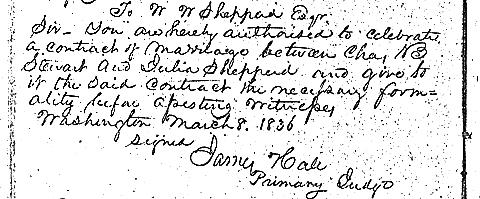 To W W Sheppard Esqr.
Sir - You are hereby authorised to celebrate
a contract of marriage between Chas B
Stewart and Julia Shepperd and give to
it the said contract the necessary form=
ality before attesting witnesses
Washington March 8. 1836
Signed
James Hall
Primary Judge